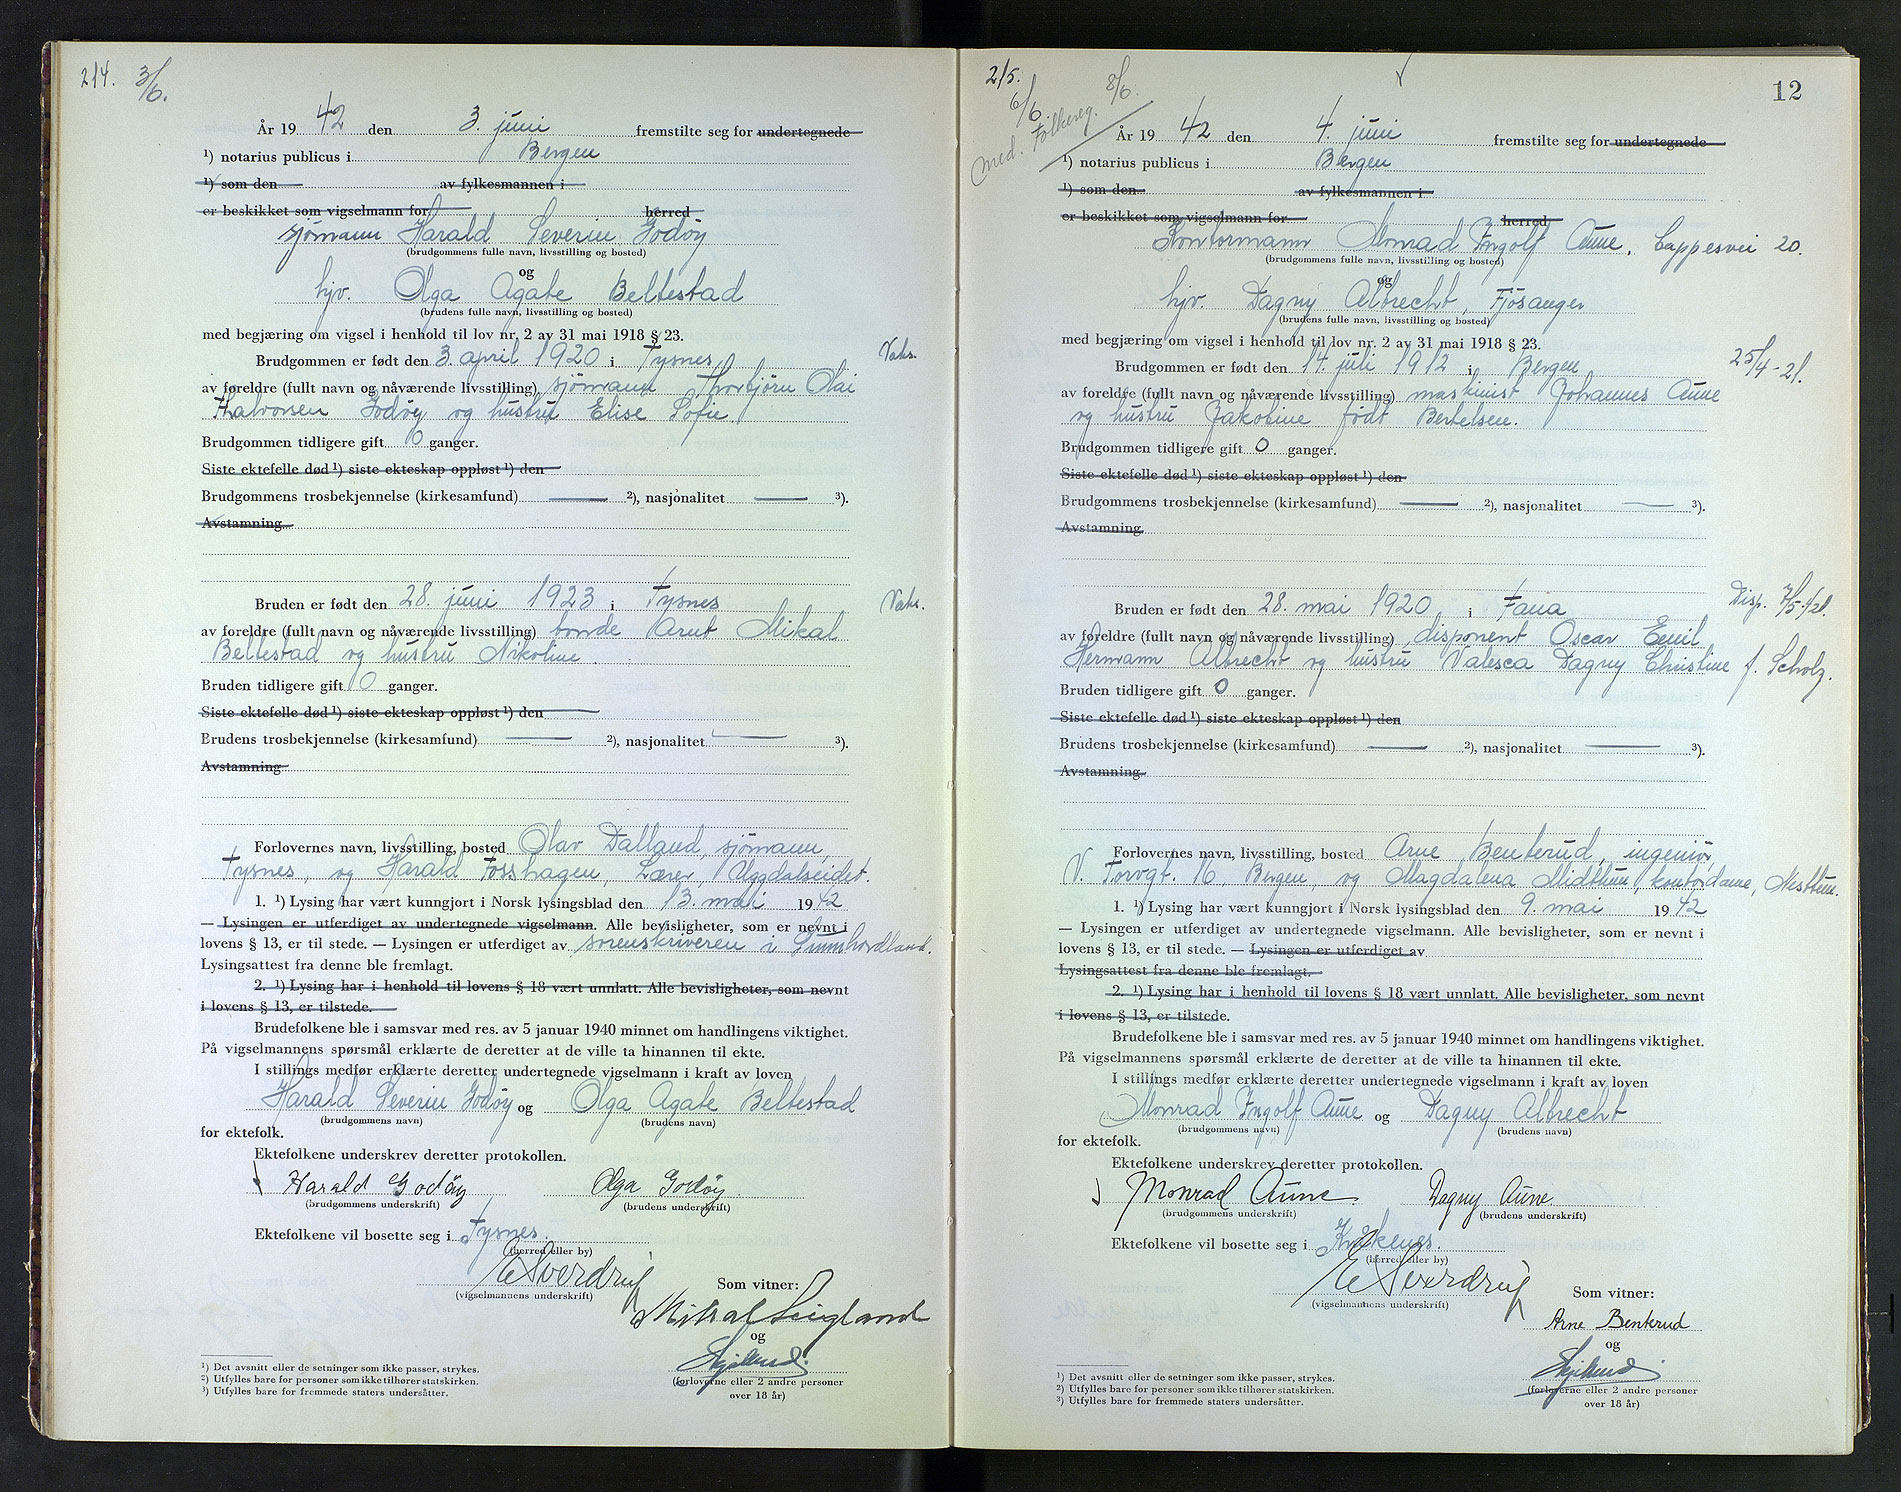 214. 3/6.
År 19 42 den 3. juni fremstilte seg for undertegnede
¹) notarius publicus i Bergen
¹) som den av fylkesmannen i
er beskikket som vigselmann for herred
sjömann Harald Severin Godöy
(brudgommens fulle navn, livsstilling og bosted)
og
hjv. Olga Agate Beltestad
(brudens fulle navn, livsstilling og bosted)
med begjæring om vigsel i henhold til lov nr. 2 av 31 mai 1918 § 23.
Brudgommen er født den 3. april 1920 i Tysnes Vaks.
av foreldre (fullt navn og nåværende livsstilling) sjömann Thorbjörn Olai
Halvorsen Godöy og hustru Elise Sofie
Brudgommen tidligere gift 0 ganger.
Siste ektefelle død ¹) siste ekteskap oppløst ¹) den
Brudgommens trosbekjennelse (kirkesamfund) — ²), nasjonalitet — ³).
Avstamning
Bruden er født den 28. juni 1923 i Tysnes Vaks.
av foreldre (fullt navn og nåværende livsstilling) bonde Arnt Mikal
Beltestad og hustru Nikoline.
Bruden tidligere gift 0 ganger.
Siste ektefelle død ¹) siste ekteskap oppløst ¹) den
Brudens trosbekjennelse (kirkesamfund) — ²), nasjonalitet — ³).
Avstamning
Forlovernes navn, livsstilling, bosted Olav Dalland, sjömann,
Tysnes, og Harald Fosshagen, Lærer, Uggdalseidet.
1. ¹) Lysing har vært kunngjort i Norsk lysingsblad den 13. mai 19 42
— Lysingen er utferdiget av undertegnede vigselmann. Alle bevisligheter, som er nevnt i
lovens § 13, er til stede. — Lysingen er utferdiget av sorenskriveren i Sunnhordland.
Lysingsattest fra denne ble fremlagt.
2. ¹) Lysing har i henhold til lovens § 18 vært unnlatt. Alle bevisligheter, som nevnt
i lovens § 13, er tilstede.
Brudefolkene ble i samsvar med res. av 5 januar 1940 minnet om handlingens viktighet.
På vigselmannens spørsmål erklærte de deretter at de ville ta hinannen til ekte.
I stillings medfør erklærte deretter undertegnede vigselmann i kraft av loven
Harald Severin Godöy og Olga Agate Beltestad
(brudgommens navn) (brudens navn)
for ektefolk.
Ektefolkene underskrev deretter protokollen.
Harald Godöy Olga Godöy.
(brudgommens underskrift) (brudens underskrift)
Ektefolkene vil bosette seg i Tysnes.
(herred eller by)
E Sverdrup Som vitner:
(vigselmannens underskrift)
Mikal
og
(forloverne eller 2 andre personer
over 18 år)
¹) Det avsnitt eller de setninger som ikke passer, strykes.
²) Utfylles bare for personer som ikke tilhører statskirken.
³) Utfylles bare for fremmede staters undersåtter.
215. 12
6/6 8/6.
med. Folkereg.
År 19 42 den 4. juni fremstilte seg for undertegnede
¹) notarius publicus i Bergen
¹) som den av fylkesmannen i
er beskikket som vigselmann for herred
Kontormann Monrad Ingolf Aune, Cappesvei 20.
(brudgommens fulle navn, livsstilling og bosted)
og
hjv. Dagny Albrecht, Fjösanger
(brudens fulle navn, livsstilling og bosted)
med begjæring om vigsel i henhold til lov nr. 2 av 31 mai 1918 § 23.
Brudgommen er født den 14. juli 1912 i Bergen 25/4-21.
av foreldre (fullt navn og nåværende livsstilling) maskinist Johannes Aune
og hustru Jakobine født Bertelsen.
Brudgommen tidligere gift 0 ganger.
Siste ektefelle død ¹) siste ekteskap oppløst ¹) den
Brudgommens trosbekjennelse (kirkesamfund) — ²), nasjonalitet — ³).
Avstamning
Bruden er født den 28. mai 1920 i Fana Disp. 7/5-42.
av foreldre (fullt navn og nåværende livsstilling) disponent Oscar Emil
Hermann Albrecht og hustru Valesca Dagny Christine f. Scholz.
Bruden tidligere gift 0 ganger.
Siste ektefelle død ¹) siste ekteskap oppløst ¹) den
Brudens trosbekjennelse (kirkesamfund) — ²), nasjonalitet — ³).
Avstamning
Forlovernes navn, livsstilling, bosted Arne Benterud, ingeniör
V. Torvgt. 16, Bergen, og Magdalena Midttun, kontordame, Nesttun.
1. ¹) Lysing har vært kunngjort i Norsk lysingsblad den 9. mai 19 42
— Lysingen er utferdiget av undertegnede vigselmann. Alle bevisligheter, som er nevnt i
lovens § 13, er til stede. — Lysingen er utferdiget av
Lysingsattest fra denne ble fremlagt.
2. ¹) Lysing har i henhold til lovens § 18 vært unnlatt. Alle bevisligheter, som nevnt
i lovens § 13, er tilstede.
Brudefolkene ble i samsvar med res. av 5 januar 1940 minnet om handlingens viktighet.
På vigselmannens spørsmål erklærte de deretter at de ville ta hinannen til ekte.
I stillings medfør erklærte deretter undertegnede vigselmann i kraft av loven
Monrad Ingolf Aune og Dagny Albrecht
(brudgommens navn) (brudens navn)
for ektefolk.
Ektefolkene underskrev deretter protokollen.
Monrad Aune Dagny Aune
(brudgommens underskrift) (brudens underskrift)
Ektefolkene vil bosette seg i
(herred eller by)
E Sverdrup Som vitner:
(vigselmannens underskrift)
Arne Benterud
og
(forloverne eller 2 andre personer
over 18 år)
¹) Det avsnitt eller de setninger som ikke passer, strykes.
²) Utfylles bare for personer som ikke tilhører statskirken.
³) Utfylles bare for fremmede staters undersåtter.